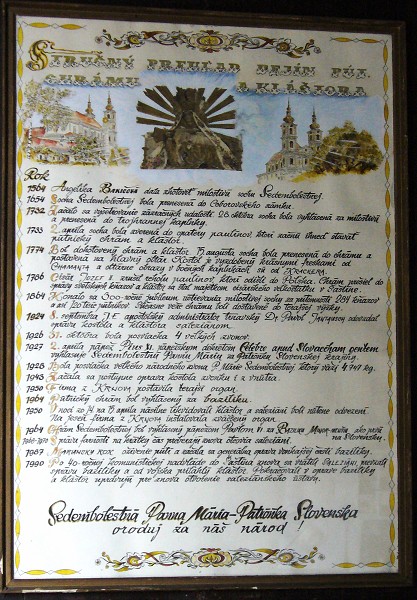 Stručný prehľad dejín pút.
chrámu a kláštora
Rok
1564 Angelika Bakičová dala zhotoviť milostivú sochu Sedembolestnej.
1654 Socha Sedembolestnej bola prenesená do Coborovského zámku.
1732 Začalo sa vyšetrovanie zázračných udalostí. 26. októbra socha bola vyhlásená za milostivú
a prenesená do trojhrannej kaplnky.
1733 2. apríla socha bola zverená do opatery paulínov, ktorí začali ihneď stavať
pútnický chrám a kláštor.
1774 Bol dohotovený chrám a kláštor. 15. augusta socha bola prenesená do chrámu a
postavená na hlavný oltár. Kostol je vyzdobený krásnymi freskami od
Chamanta a oltárne obrazy v bočných kaplnkách sú od Krackera.
1786 Cisár Jozef II. zrušil rehoľu paulínov, ktorí odišli do Poľska. Chrám prešiel do
správy svetských kňazov a kláštor sa stal majetkom
1864 Konalo sa 300-ročné jubileum uctievania milostivej sochy za prítomnosti 289 kňazov
a veží chrámu boli dostavané do terajšej výšky.
1924 8. septembra J.E. apoštolský administrátor Trnavský Dr. Pavol Jantausch odovzdal
správu kostola a kláštora saleziánom.
1926 31. októbra bola posviacka 4 veľkých zvonov.
1927 2. apríla pápež Pius XI. zápežským dekrétom Celebre apud Slovachiam gentem
vyhlasuje Sedembolestnú Pannu Máriu za Patrónku Slovenskej krajiny.
1928 Bola posviacka veľkého národného zvona P. Márie Sedembolestnej, ktorý váži 4.747 kg.
1945 Začalo sa postupne oprava kostola zvonku i z vnútra.
1950 Firma z Krnova postavila terajší organ.
1964 Pútnický chrám bol vyhlásený za baziliku.
1950 V noci zo 14. na 15. apríla násilne likvidovali kláštor a saleziáni boli nútene odvezení.
Na jeseň firma z Krnova postavila organ.
1964 Chrám Sedembolestnej bol vyhlásený pápežom Pavlom VI. za Bazilicu Minor ako prvý
na Slovensku.
Správu farnosti na krátky čas prevzali znova otcovia saleziáni.
1987 Mariánsky rok oživenie púte a začala sa generálna oprava vonkajšej časti baziliky.
1990 Po 40-ročnej komunistickej nadvláde do Šaštína znova sa vrátili Saleziáni, prevzali
správu baziliky a od výšku kláštor. Pokračovali v oprave baziliky
a kláštor upravujú pre znova otvorenie saleziánskeho ústavu.
Sedembolestná Panna Mária-Patrónka Slovenska
oroduj za náš národ!